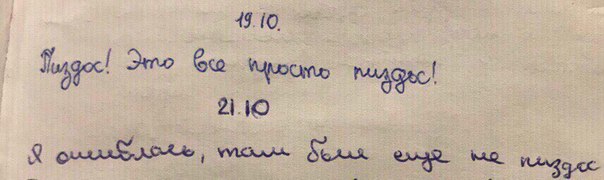 19.10.
Пиздос! Это все просто пиздос!
21.10
Я ошиблась, там был еще не пиздос